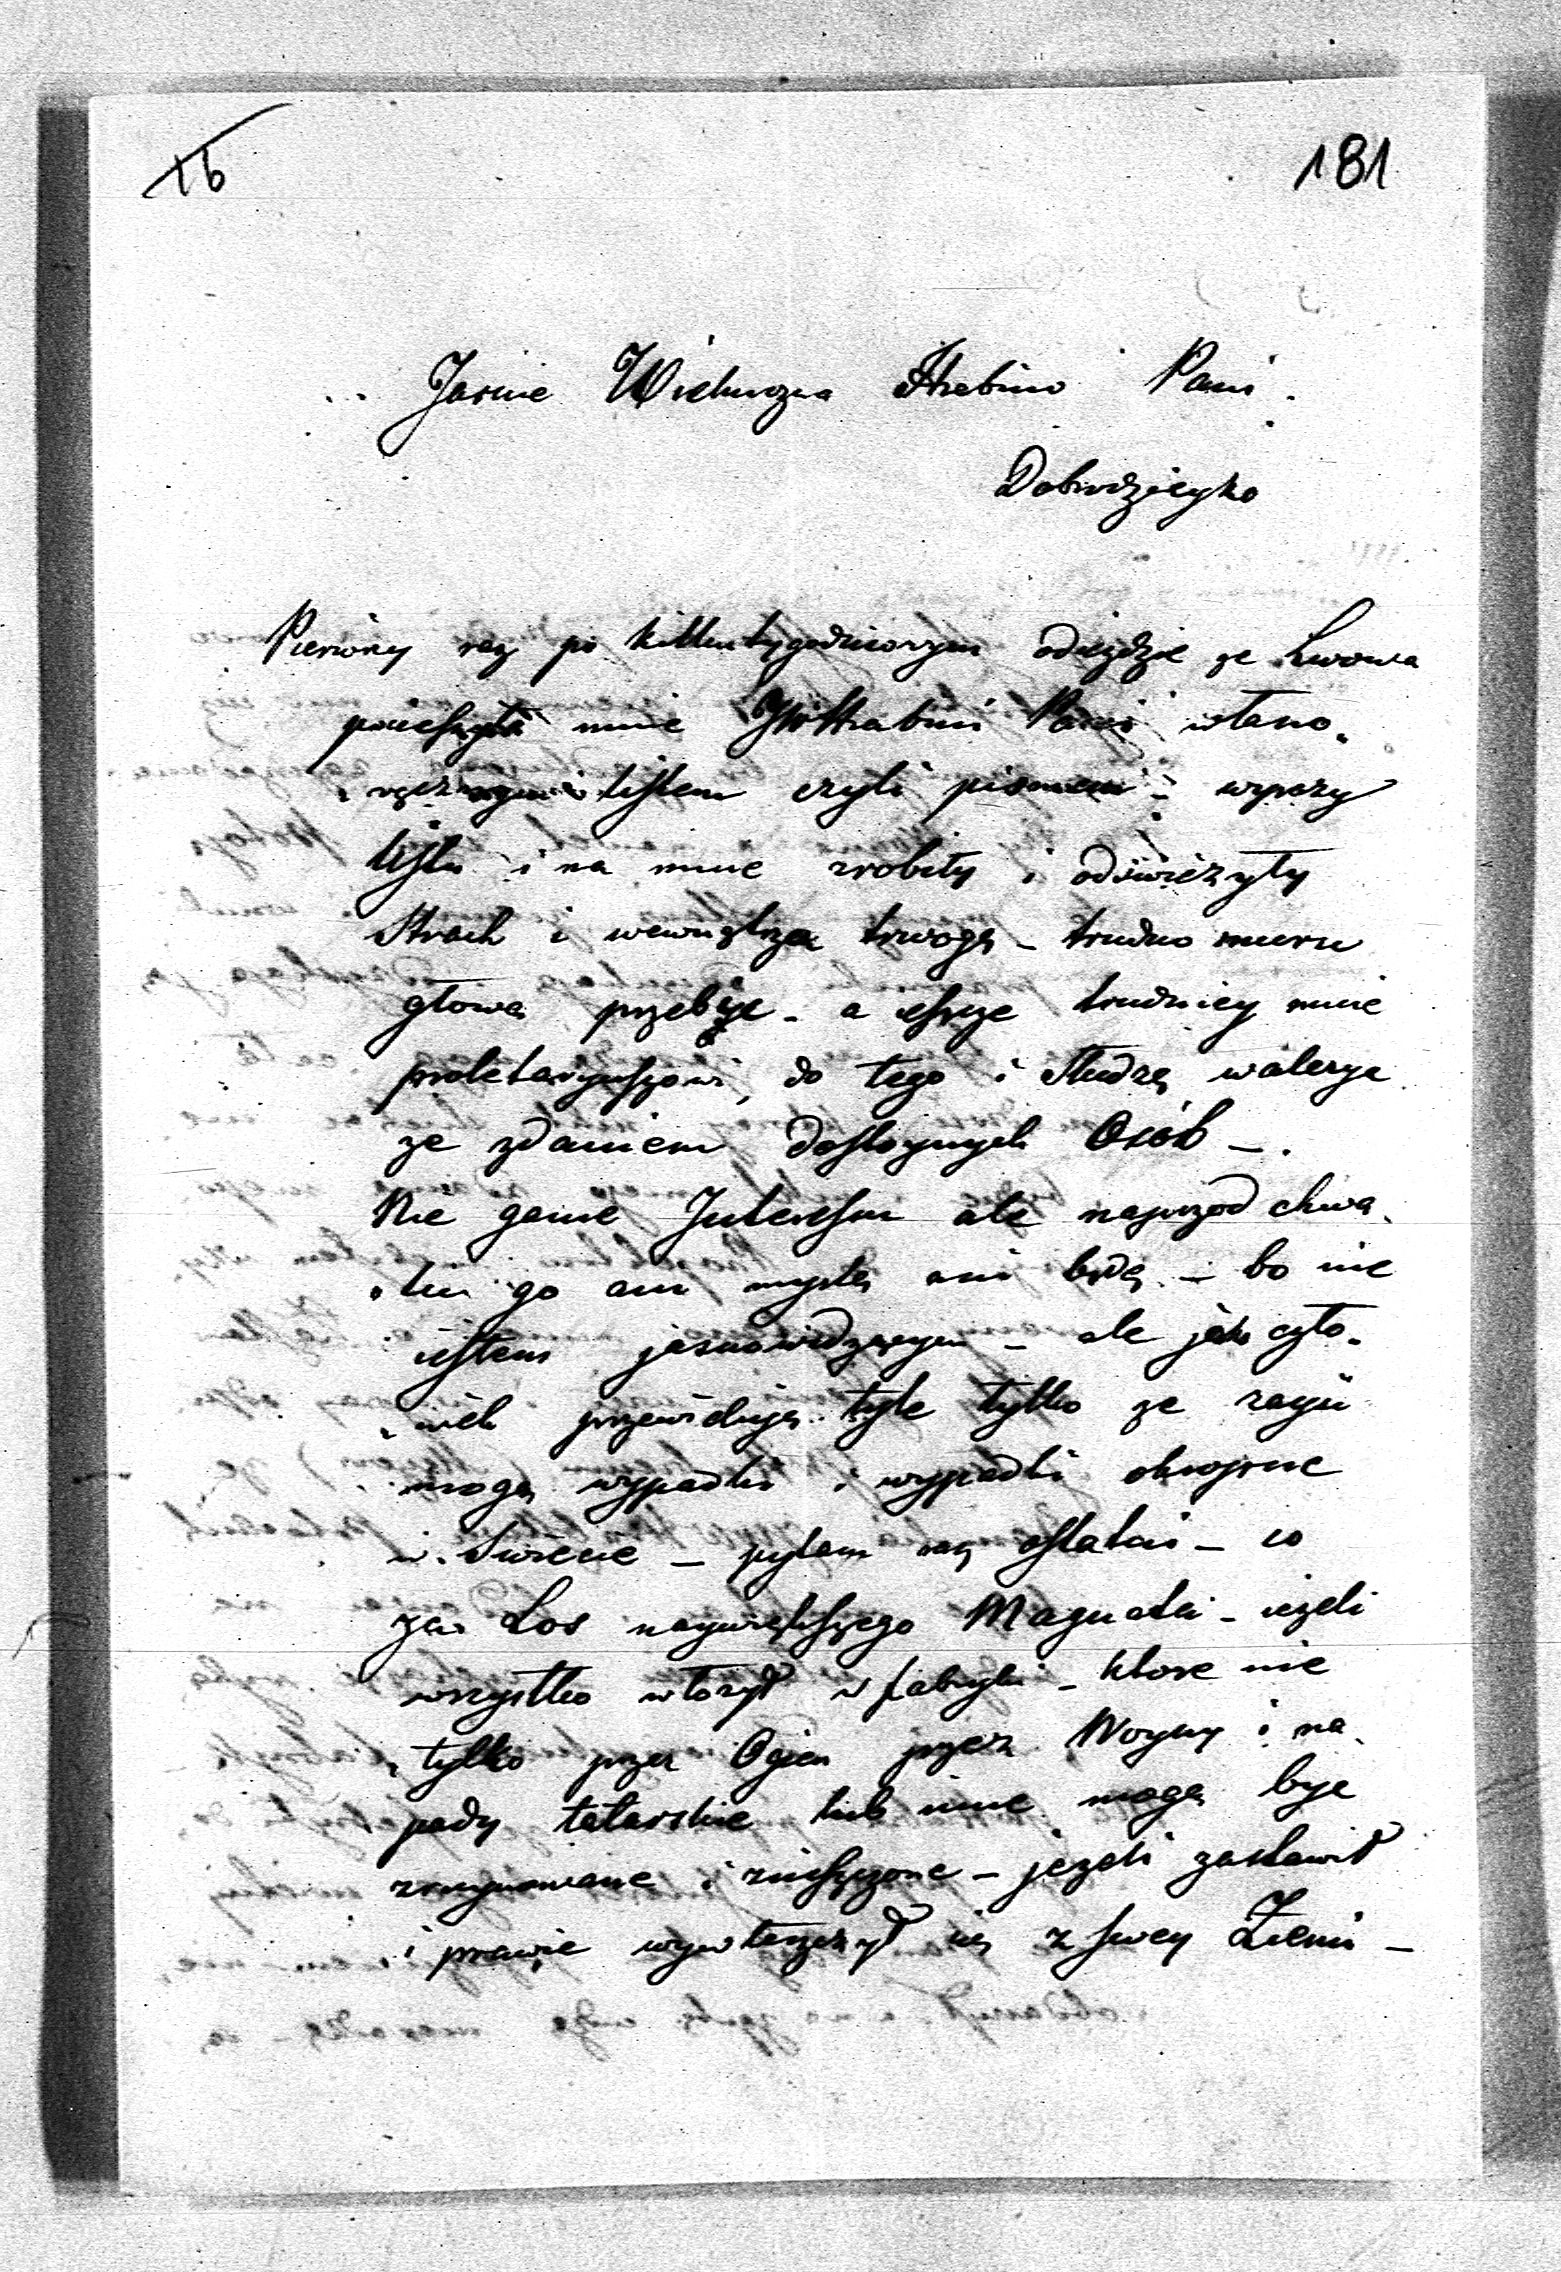 16
181
Jasnie Wielmozna Hrabino Pani
Dobrodzieyko
Pierwszy raz po kilkutygodniowym odiezdzie ze Lwowa
pocieszyła mnie JWHrabini Pani własno„
„ręcznym listem czyli pismem –
listu i na mnie zrobiły i odswieżyły
Strach i wewnętrzną trwogę – trudno muru
głową przebyc – a ieszcze trudniey mnie
proletaryuszowi, do tego i Słudze walczyc
ze zdaniem dostoynych Osób –.
Nie ganie Interessu ale naprzod chwa„
„lic go ani myslę ani będę – bo nie
iestem jasnowidzącym – ale jako czło„
„wiek przewiduję tyle tylko ze zayść
mogą wypadki i wypadki okropne
w Swiecie – pytam się ostatni – co
za Los naywiększego Magnata – ieżeli
wszystko włożył w fabryki – ktore nie
„tylko przez Ogien przez Woyny i na„
pady tatarskie lub inne mogą byc
zruynowane i zniszczone – jezeli zastawił
i prawie wywłaszczył się z swey Ziemi –